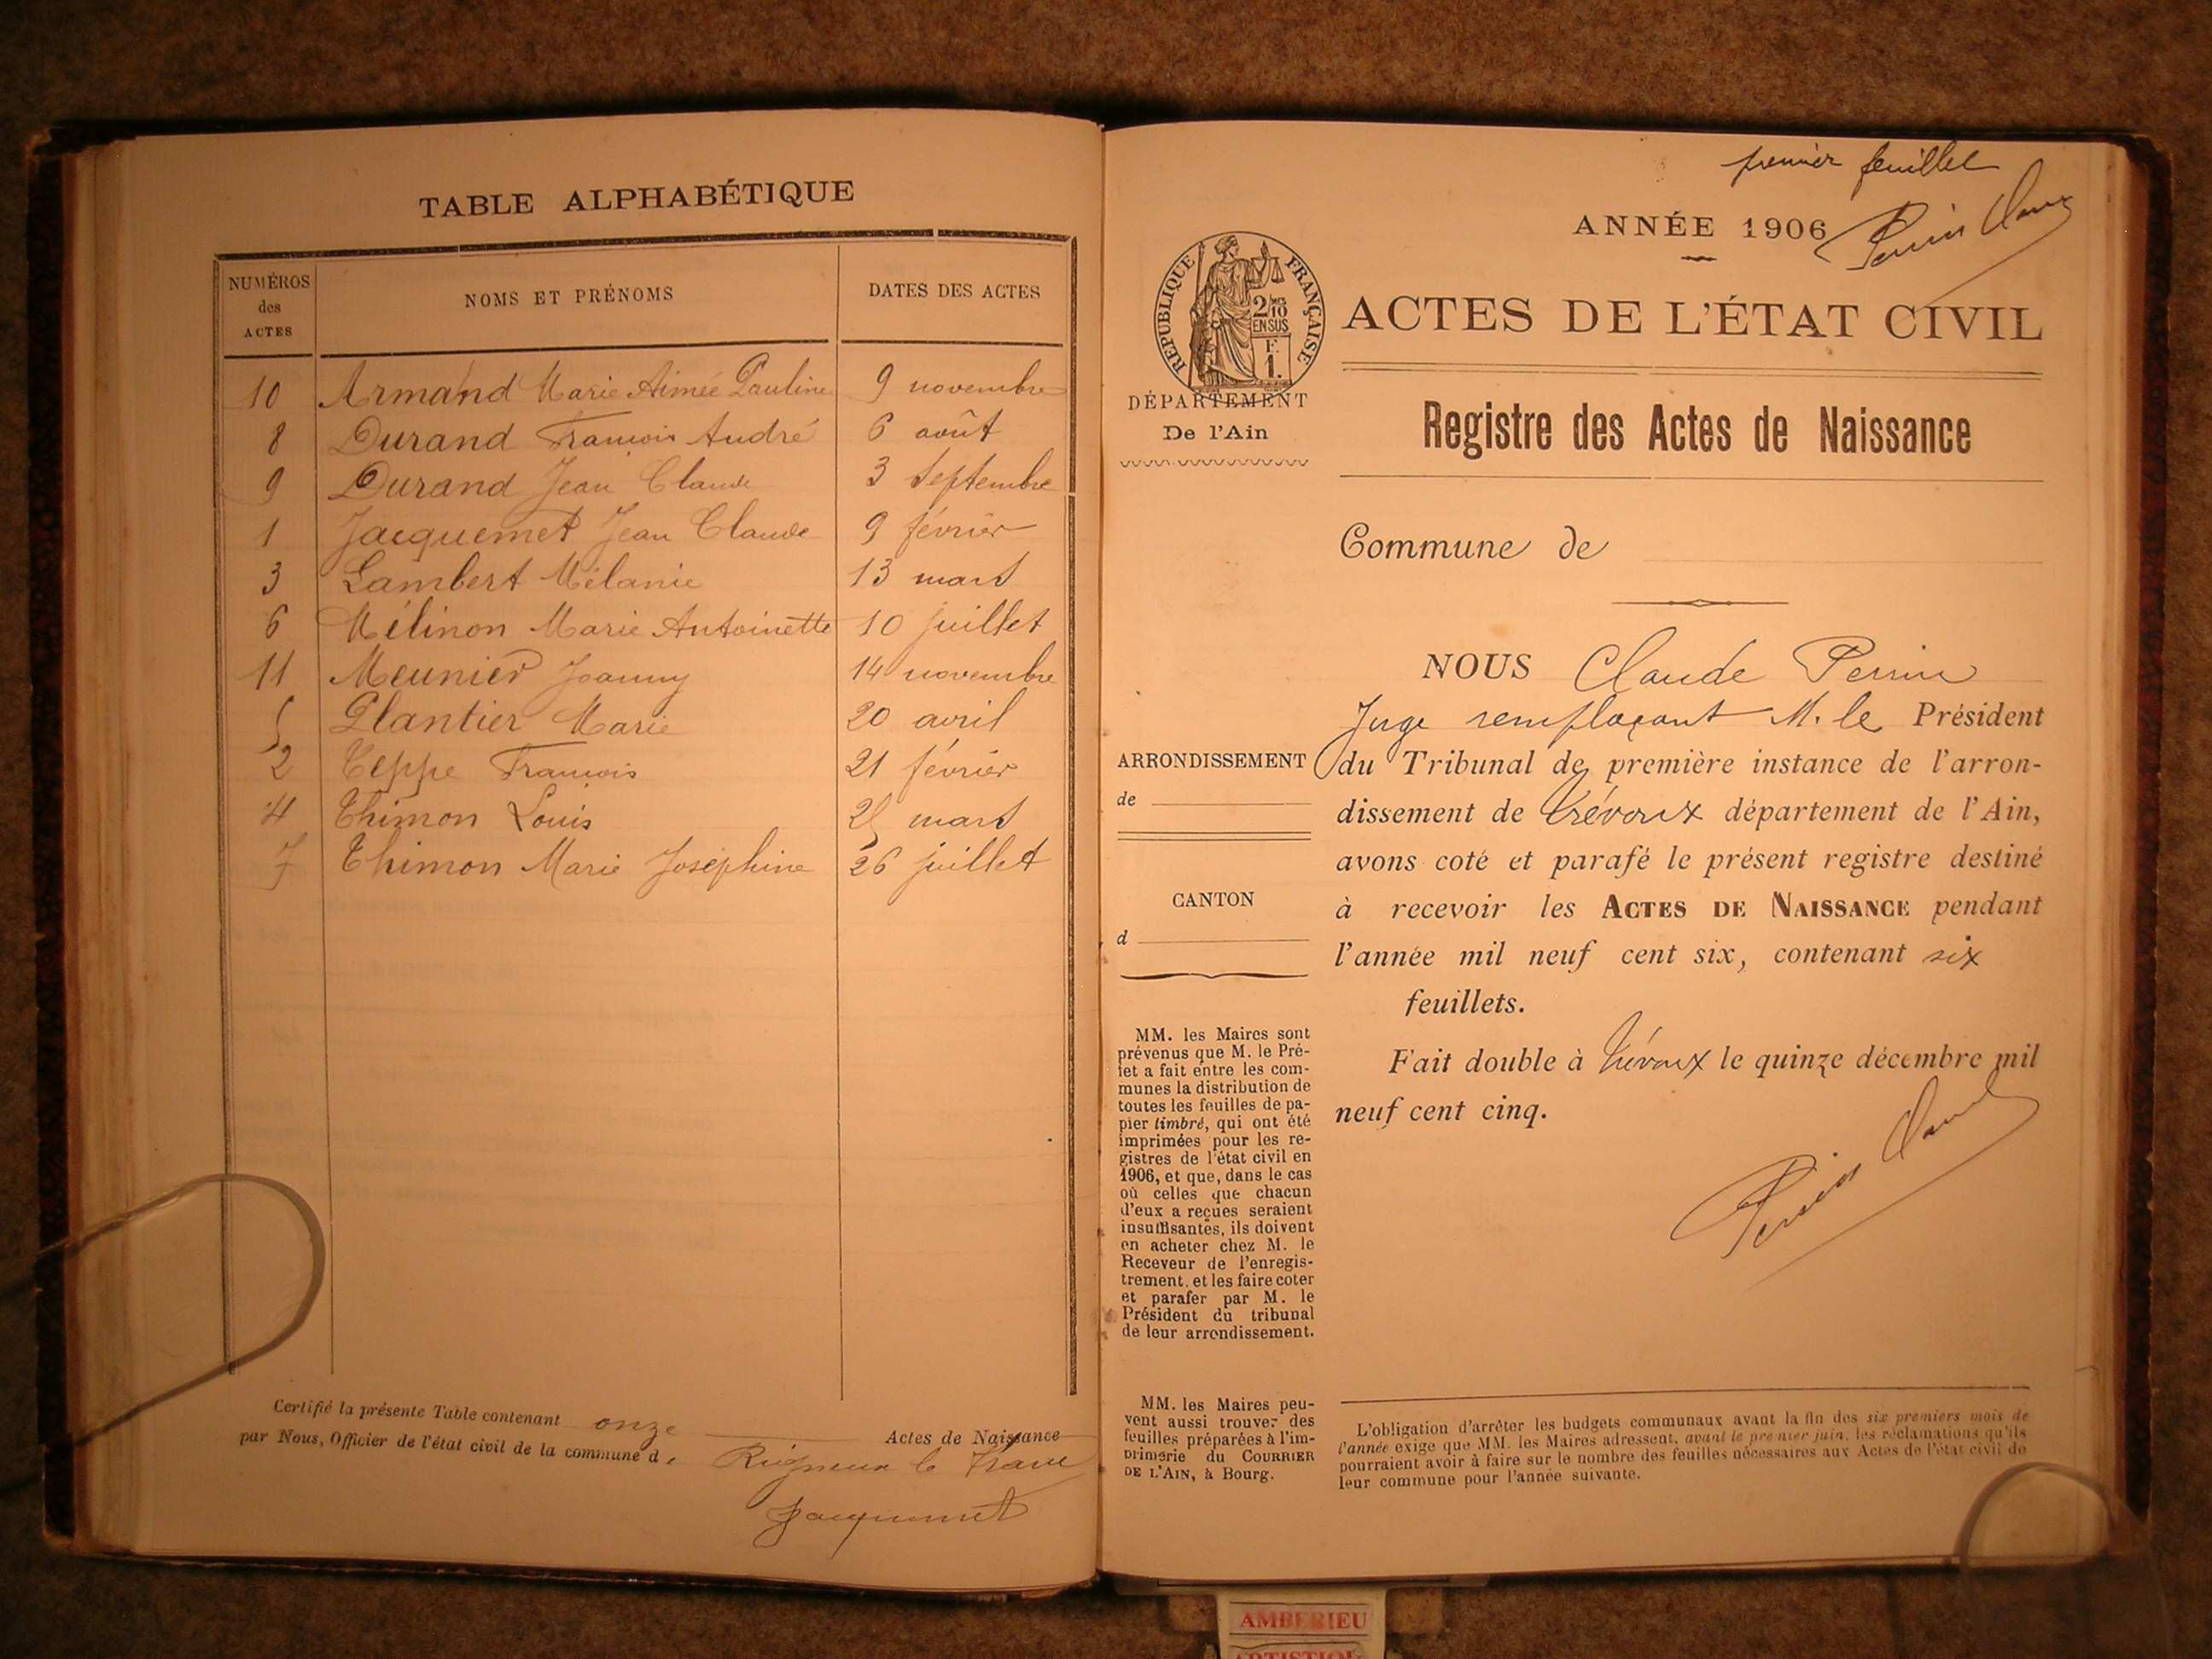 TABLE ALPHABÉTIQUE
NUMÉROS
des
ACTES
NOMS ET PRÉNOMS
DATES DES ACTES
10 Armand Marie Aimée Pauline 9 novembre
8 Durand François André 6 août
9 Durand Jean Claude 3 Septembre
1 Jacquemet Jean Claude 9 février
3 Lambert Mélanie 13 mars
6 Mélinon Marie Antoinette 10 juillet
11 Meunier Joanny 14 novembre
5 Plantier Marie 20 avril
2 Teppe François 21 février
4 Thimon Louis 25 mars
7 Thimon Marie Joséphine 26 juillet
Certifié la présente Table contenant onze Actes de Naissance
par Nous, Officier de l'état civil de la commune d Rignieux le Franc
Jacquemet
premier feuillet
Perrin Claude
ANNÉE 1906
RÉPUBLIQUE FRANÇAISE
2/10
EN SUS
F.
1.
ACTES DE L'ÉTAT CIVIL
DÉPARTEMENT
De l'Ain
Registre des Actes de Naissance
Commune de
NOUS Claude Perrin
Juge remplaçant M. le Président
du Tribunal de première instance de l'arron-
dissement de Trévoux département de l'Ain,
avons coté et parafé le présent registre destiné
à recevoir les ACTES DE NAISSANCE pendant
l'année mil neuf cent six, contenant six
feuillets.
Fait double à Trévoux le quinze décembre mil
neuf cent cinq.
Perrin Claude
ARRONDISSEMENT
de
CANTON
d
MM. les Maires sont
prévenus que M. le Pré-
fet a fait entre les com-
munes la distribution de
toutes les feuilles de pa-
pier timbré, qui ont été
imprimées pour les re-
gistres de l'état civil en
1906, et que, dans le cas
où celles que chacun
d'eux a reçues seraient
insuffisantes, ils doivent
en acheter chez M. le
Receveur de l'enregis-
trement, et les faire coter
et parafer par M. le
Président du tribunal
de leur arrondissement.
MM. les Maires peu-
vent aussi trouver des
feuilles préparées à l'im-
primerie du COURRIER
DE L'AIN, à Bourg.
L'obligation d'arrêter les budgets communaux avant la fin des six premiers mois de
l'année exige que MM. les Maires adressent, avant le premier juin, les réclamations qu'ils
pourraient avoir à faire sur le nombre des feuilles nécessaires aux Actes de l'état civil de
leur commune pour l'année suivante.
AMBERIEU